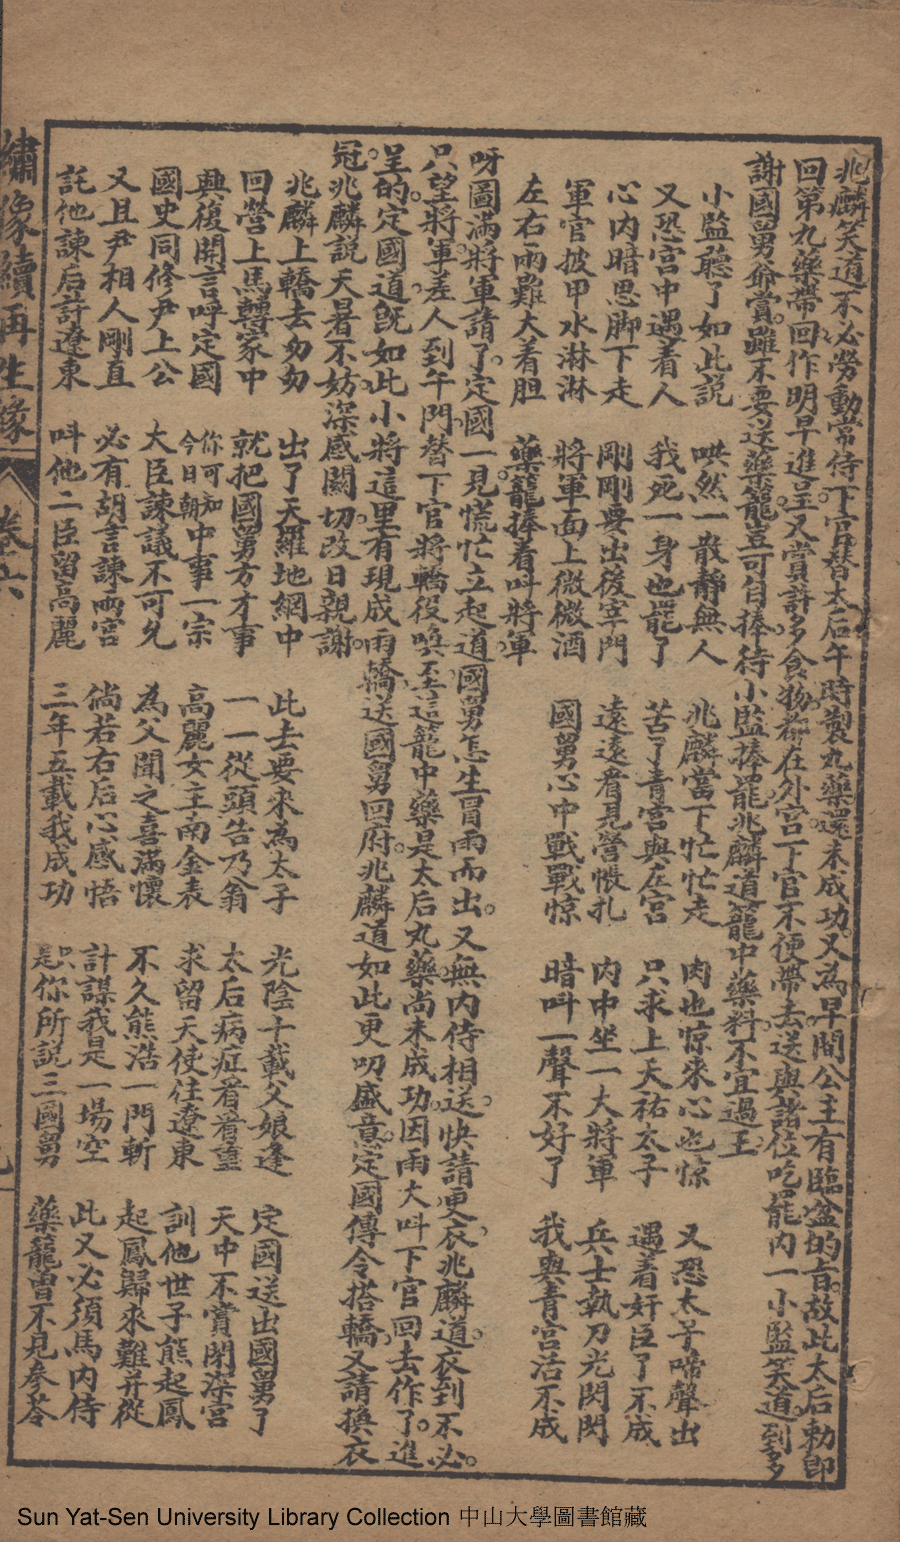 兆麟笑道不必勞動常侍下官替太后午時製丸藥還未成功又為早間公主有臨盆的旨故此太后勅即
回第九藥帶回作明早進呈又賞許多食物都在外宮下官不便帶去送與諸位吃罷內一小監笑道到多
謝國舅爺賞雖不要送藥籠豈可自捧待小監捧罷兆麟道籠中藥料不宜過王
小監聽了如此説 哄然一散靜無人 兆麟當下忙忙走 肉也惊來心也惊 又恐太子啼聲出
又恐宮中遇着人 我死一身也罷了 苦了青宮與庄宮 只求上天祐太子 遇着奸臣了不成
心內暗思脚下走 剛剛要出後宰門 遠遠看見營帳扎 內中坐一大將軍 兵士執刀光閃閃
軍官披甲水淋淋 將軍面上微微酒 國舅心中戰戰惊 暗叫一聲不好了 我與青宮活不成
左右雨雖大着胆 藥籠捧着叫將軍
呀圖滿將軍請了定國一見慌忙立起道國舅怎生冒雨而出又無內侍相送快請更衣兆麟道衣到不必
只望將軍差人到午門替下官將轎役喚至這籠中藥是太后丸藥尚未成功因雨大叫下官回去作了進
呈的定國道旣如此小將這里有現成雨轎送國舅回府兆麟道如此更叨盛意定國傳令搭轎又請換衣
冠兆麟説天暑不妨深感關切改日親謝
兆麟上轎去匆匆 出了天羅地網中 此去要來為太子 光陰十載父娘逢 定國送出國舅了
回營上馬轉家中 就把國舅方才事 一一從頭告乃翁 太后病症看看重 天中不賞閉深宮
興復開言呼定國 你可知今日朝中事一宗 高麗女主南金表 求留天使住遼東 訓他世子熊起鳳
國史同修尹上公 大臣諫議不可允 為父聞之喜滿懷 不久熊浩一門斬 起鳳歸來難並從
又且尹相人剛直 必有胡言諫兩宮 倘若右后心感悟 計謀我是一場空 此又必須馬內侍
託他諫后許遼東 叫他二臣留高麗 三年五載我成功 只是你所説三國舅 藥籠曾不見參苓
繡像續再生緣 卷六
Sun Yat-Sen University Library Collection 中山大學圖書館藏